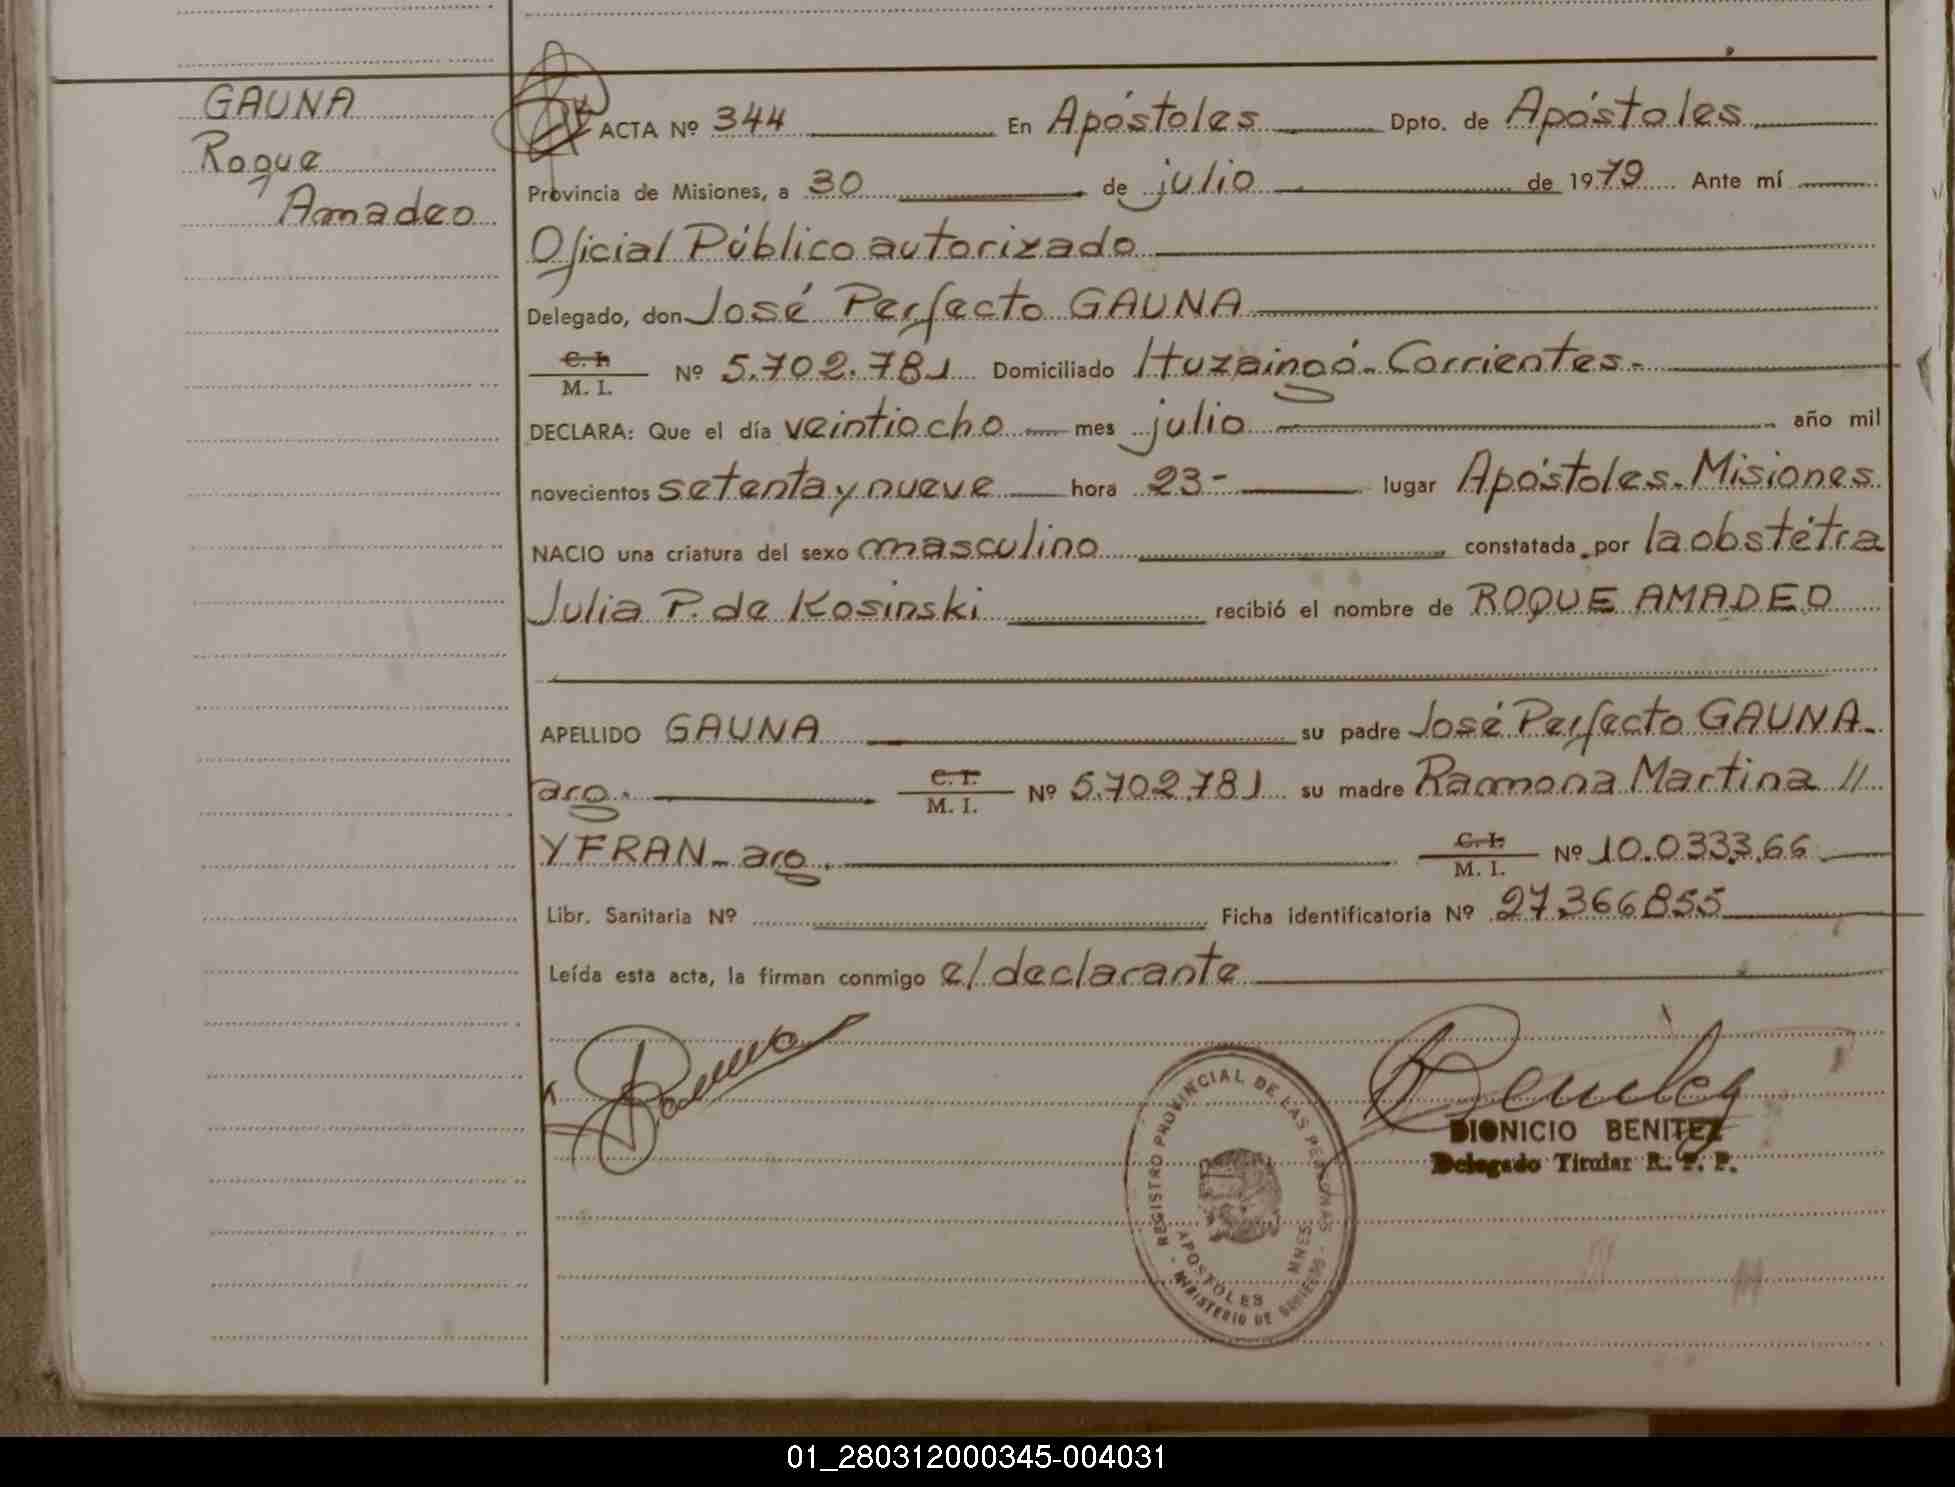 GAUNA
Roque
Amadeo
ACTA Nº 344 En Apóstoles Dpto. de Apóstoles
Provincia de Misiones, a 30 de julio de 1979 Ante mí
Oficial Público autorizado
Delegado, don José Perfecto GAUNA
C. I.
M. I. Nº 5.702.781 Domiciliado Ituzaingó - Corrientes -
DECLARA: Que el día veintiocho mes julio año mil
novecientos setenta y nueve hora 23- lugar Apóstoles - Misiones
NACIO una criatura del sexo masculino constatada por la obstétra
Julia P. de Kosinski recibió el nombre de ROQUE AMADEO
APELLIDO GAUNA su padre José Perfecto GAUNA -
arg. C. I.
M. I. Nº 5.702.781 su madre Ramona Martina //
YFRAN - arg. C. I.
M. I. Nº 10.033.366
Libr. Sanitaria Nº Ficha identificatoria Nº 27.366855
Leída esta acta, la firman conmigo el declarante
REGISTRO PROVINCIAL DE LAS PERSONAS
APOSTOLES MNES.
- MINISTERIO DE GOBIERNO -
Benitez
DIONICIO BENITEZ
Delegado Titular R. P. P.
01_280312000345-004031